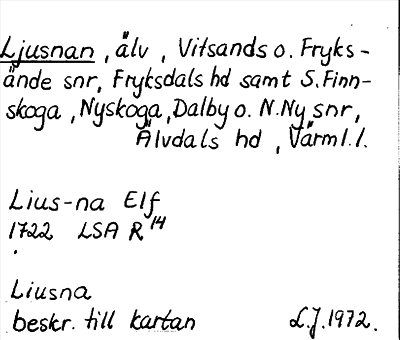 Ljusnan, älv, Vitsands o. Fryks-
ände snr, Fryksdals hd samt S. Finn-
skoga, Nyskoga, Dalby o. N. Ny snr,
Älvdals hd, Värml. l.
Lius-na Elf
1722 LSA R 14
Liusna
beskr. till kartan L.J. 1972.